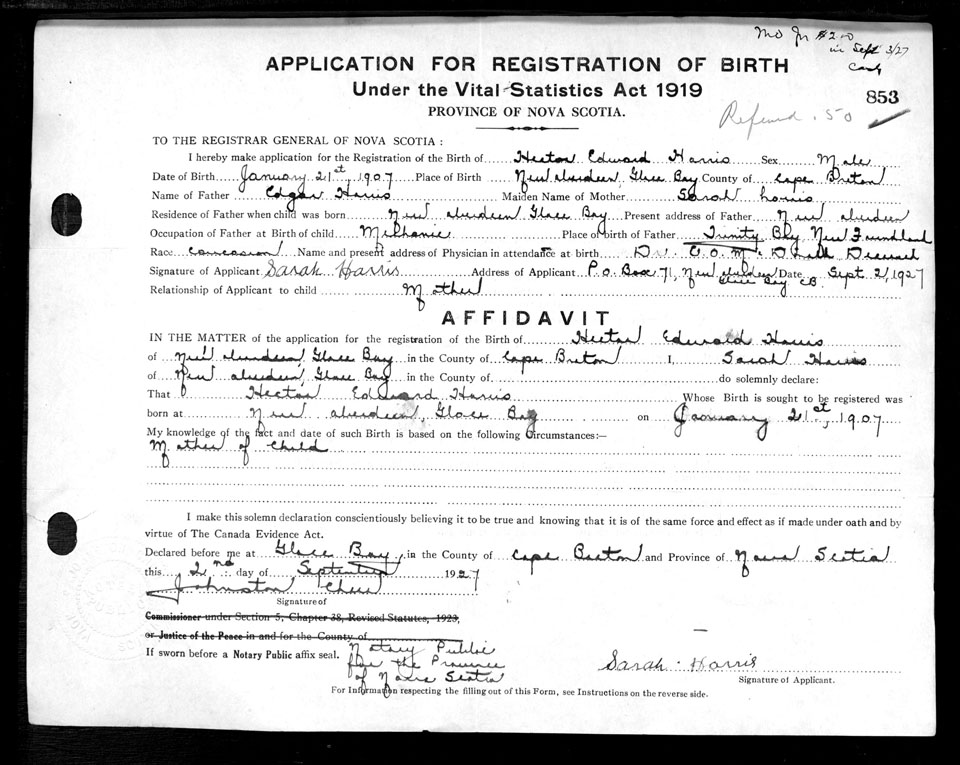 MO Jr $2.00
in Sept 3/27
APPLICATION FOR REGISTRATION OF BIRTH
Under the Vital Statistics Act 1919
853
PROVINCE OF NOVA SCOTIA.
Refund .50
TO THE REGISTRAR GENERAL OF NOVA SCOTIA :
I hereby make application for the Registration of the Birth of Hector Edward Harris Sex Male
Date of Birth January 21st, 1907 Place of Birth New aberdeen, Glace Bay County of Cape Breton
Name of Father Edgar Harris Maiden Name of Mother Sarah
Residence of Father when child was born New aberdeen Glace Bay Present address of Father New aberdeen
Occupation of Father at Birth of child Mechanic Place of birth of Father Trinity Bay New Foundland
Race Name and present address of Physician in attendance at birth Dr. Deceased
Signature of Applicant Sarah Harris Address of Applicant P.O. Box 71, New aberdeen Date Sept. 2, 1927
Glace Bay CB.
Relationship of Applicant to child Mother
AFFIDAVIT
IN THE MATTER of the application for the registration of the Birth of Hector Edward Harris
of New aberdeen Glace Bay in the County of Cape Breton I, Sarah Harris
of New aberdeen, Glace Bay in the County of do solemnly declare:
That Hector Edward Harris Whose Birth is sought to be registered was
born at New aberdeen, Glace Bay on January 21st, 1907
My knowledge of the fact and date of such Birth is based on the following Circumstances:—
Mother of Child
I make this solemn declaration conscientiously believing it to be true and knowing that it is of the same force and effect as if made under oath and by
virtue of The Canada Evidence Act.
Declared before me at Glace Bay, in the County of Cape Breton and Province of Nova Scotia
this 2nd day of September 1927
Johnston
Signature of
Commissioner under Section 5, Chapter 38, Revised Statutes, 1923,
or Justice of the Peace in and for the County of
If sworn before a Notary Public affix seal. Notary Public
for the Province
of Nova Scotia
Sarah Harris
Signature of Applicant.
For Information respecting the filling out of this Form, see Instructions on the reverse side.